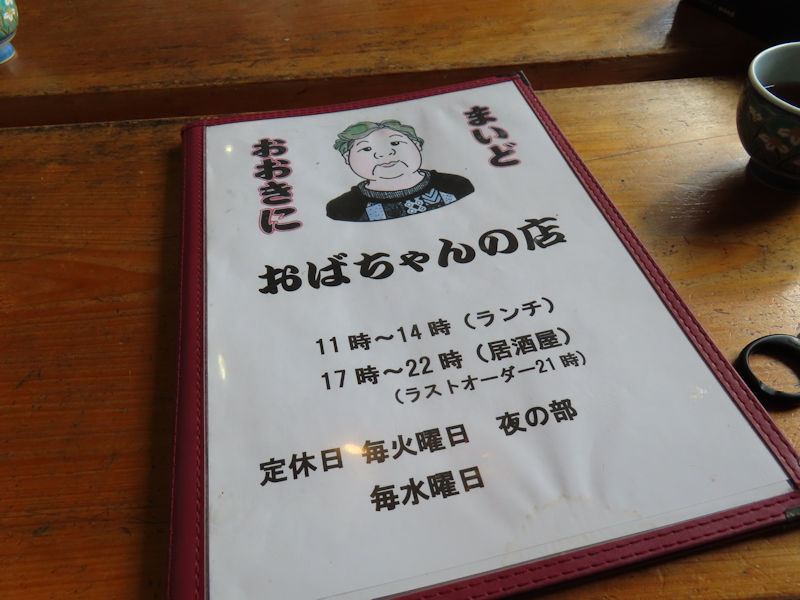 まいど
おおきに
おばちゃんの店
11時～14時（ランチ）
17時～22時（居酒屋）
（ラストオーダー21時）
定休日 毎火曜日 夜の部
毎水曜日